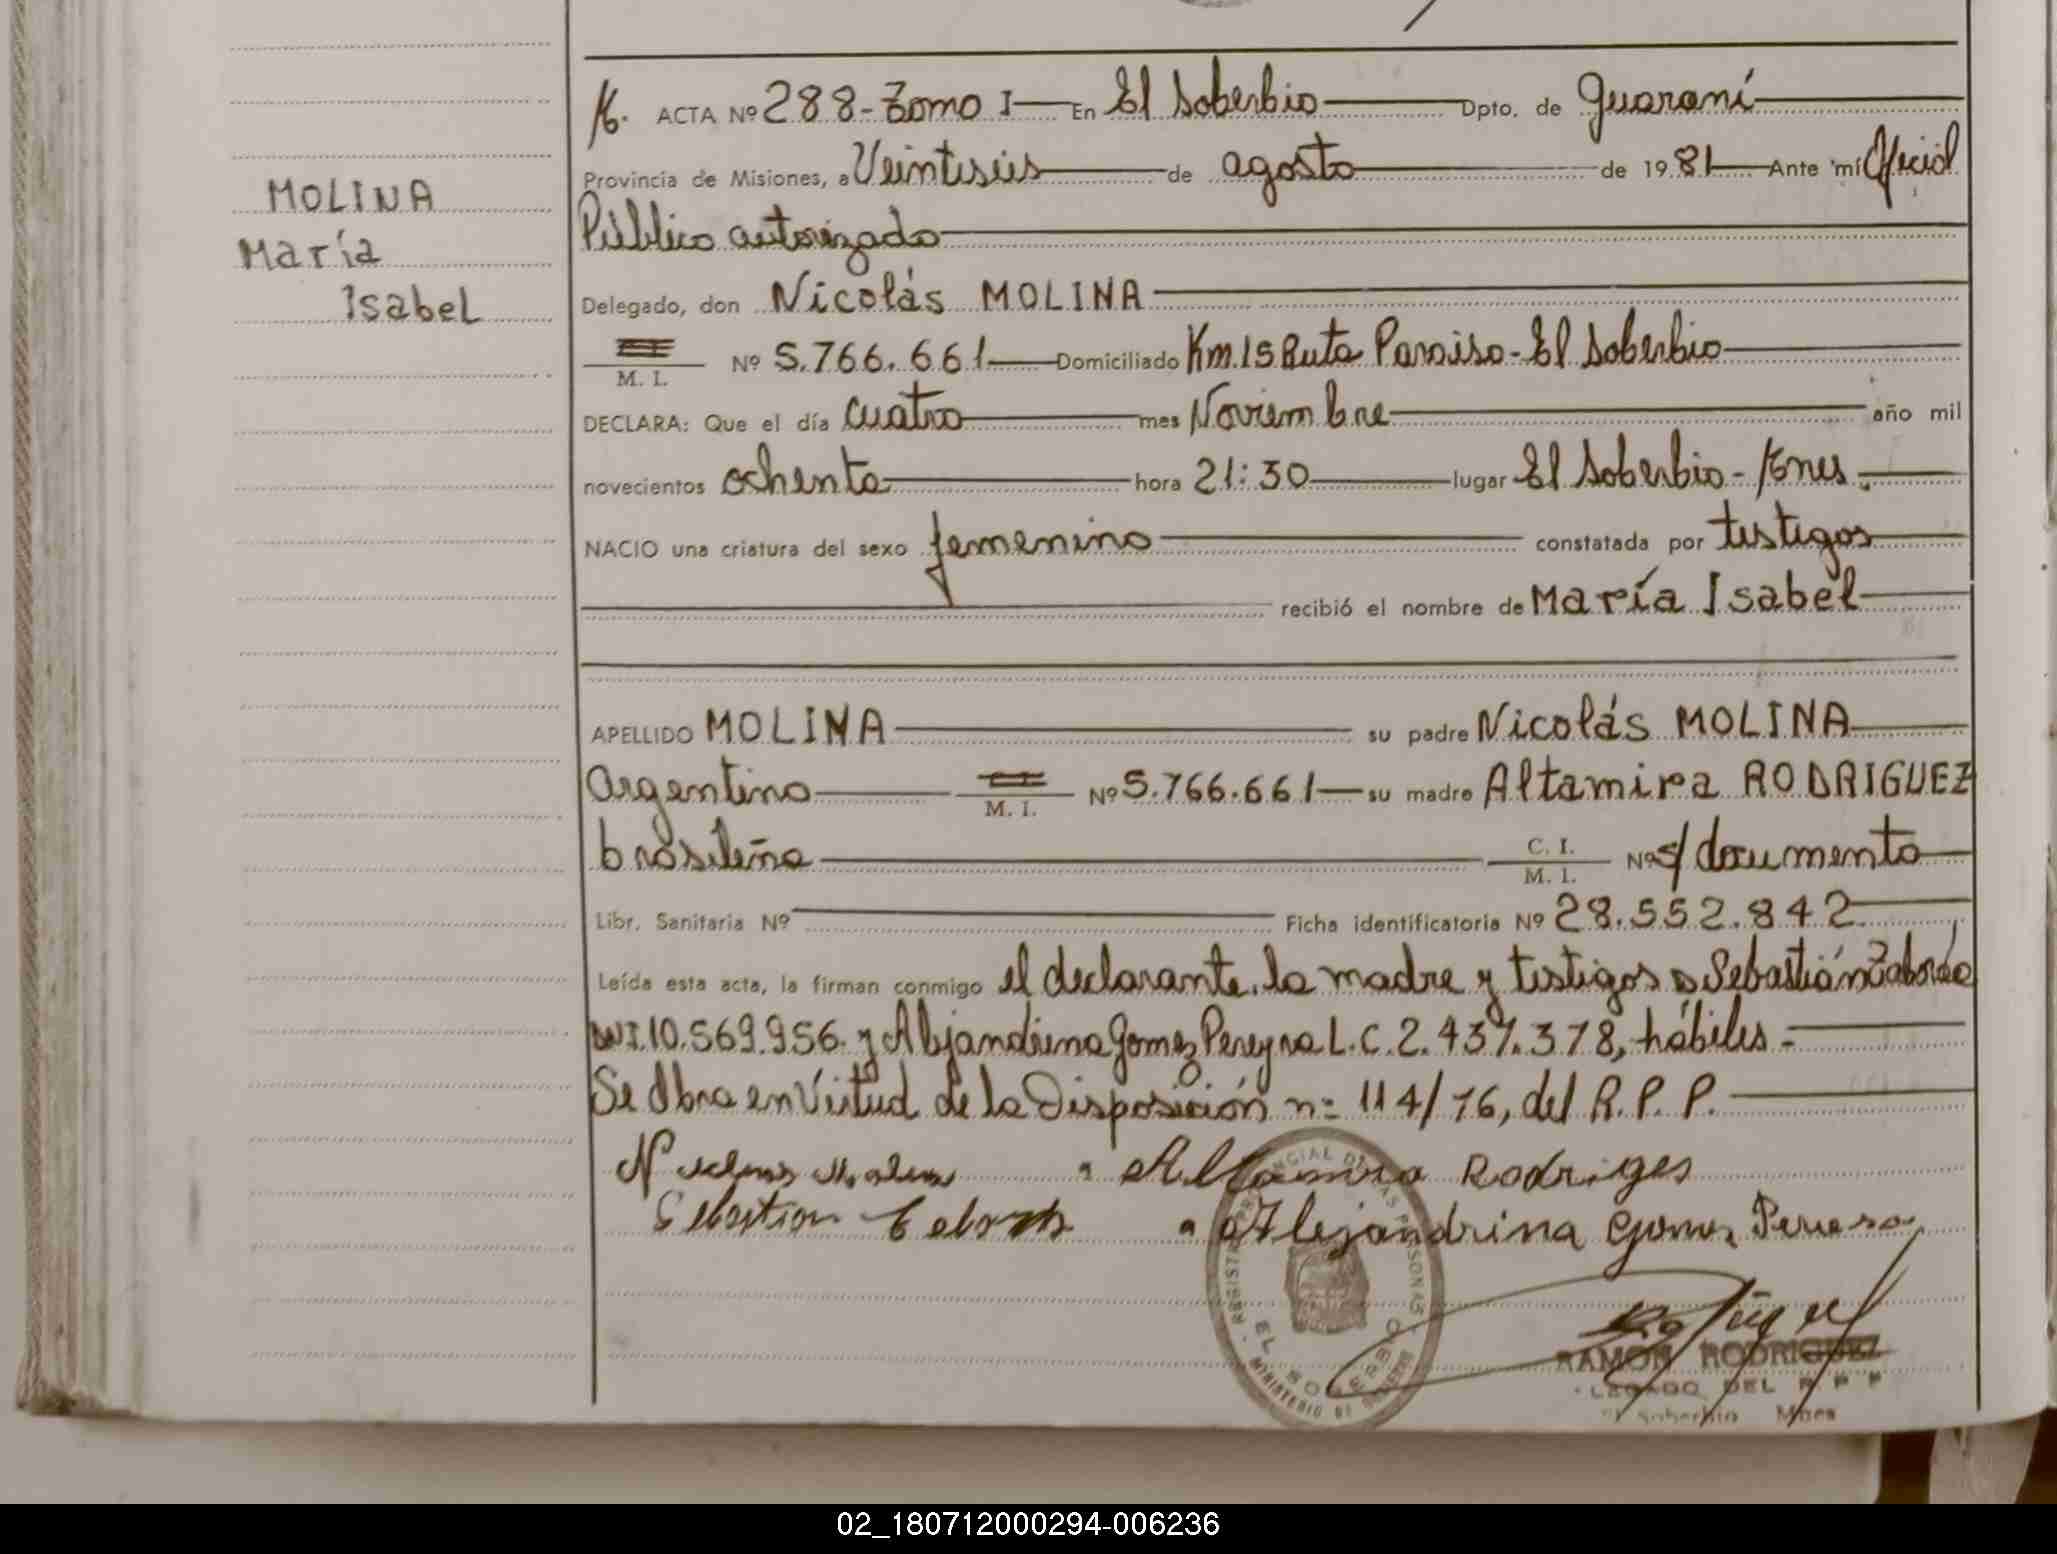 MOLINA
María
Isabel
ACTA Nº 288-Tomo I En El Soberbio Dpto. de Guaraní
Provincia de Misiones, a Veintiseis de agosto de 1981 Ante mí Oficial
Público autorizado
Delegado, don Nicolás MOLINA
M. I. Nº 5.766.661 Domiciliado Km.15 Ruta Paraiso-El Soberbio
DECLARA: Que el día cuatro mes Noviembre año mil
novecientos ochenta hora 21:30 lugar El Soberbio-Mnes.
NACIO una criatura del sexo femenino constatada por testigos
recibió el nombre de María Isabel
APELLIDO MOLINA su padre Nicolás MOLINA
argentino M. I. Nº 5.766.661 su madre Altamira RODRIGUEZ
brasileña C. I. M. I. Nº s/documento
Libr. Sanitaria Nº Ficha identificatoria Nº 28.552.842
Leída esta acta, la firman conmigo el declarante, la madre y testigos Sebastián
10.569.956. y Alejandrina Gomez Pereyra L.C. 2.437.378, hábiles-
Se Obra en Virtud de la Disposición n= 114/76, del R.P.P.
Altamira Rodriges
Sebastian
Alejandrina Gomes
REGISTRO PROVINCIAL DE LAS PERSONAS
EL SOBERBIO
MINISTERIO DE GOBIERNO
RAMON RODRIGUEZ
DEL R P P
El Soberbio Mnes
02_180712000294-006236